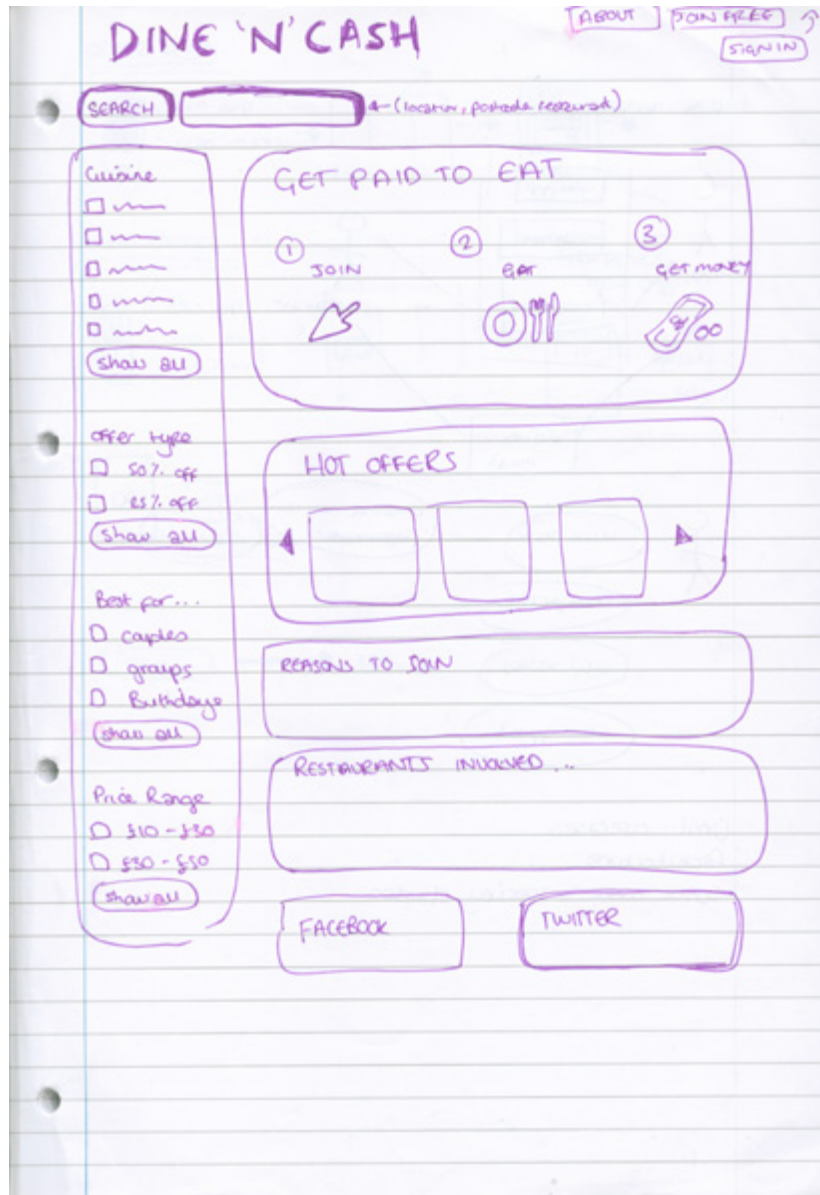 DINE 'N' CASH
ABOUT
JOIN FREE
SIGN IN
SEARCH
(location, postcode required)
Cuisine
show all
offer type
50% off
25% off
show all
Best for...
couples
groups
Birthdays
show all
Price Range
£10 - £30
£30 - £50
show all
GET PAID TO EAT
1 JOIN
2 EAT
3 GET MONEY
HOT OFFERS
REASONS TO JOIN
RESTAURANTS INVOLVED ...
FACEBOOK
TWITTER